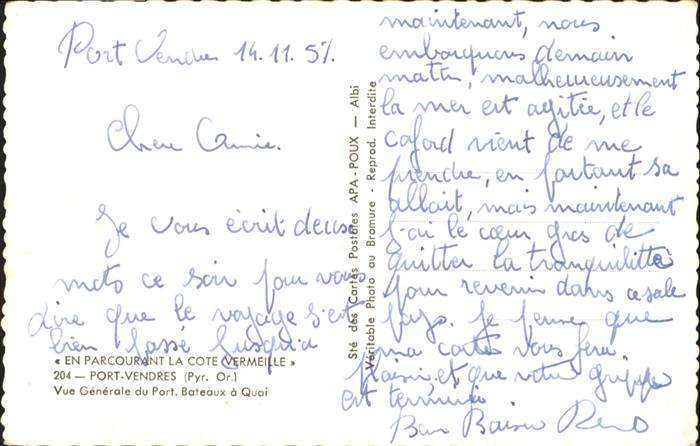 Port Vendres 14.11.57
Chere Amie.
Je vous écrit deux
mots ce soir pour vous
dire que le voyage s'est
bien passé jusqu'a
« EN PARCOURANT LA COTE VERMEILLE »
204 — PORT-VENDRES (Pyr. Or.)
Vue Générale du Port. Bateaux à Quai
Sté des Cartes Postales APA-POUX — Albi
Véritable Photo au Bromure - Reprod. Interdite
maintenant, nous
embarquons demain
matin, malheureusement
la mer est agitée, et le
cafard vient de me
prendre, en partant sa
allait, mais maintenant
j'ai le cœur gros de
quitter la tranquilitté
pour revenir dans ce sale
pays. Je pense que
ma carte vous fera
plaisir, et que votre grippe
est terminé.
Bon Baiser